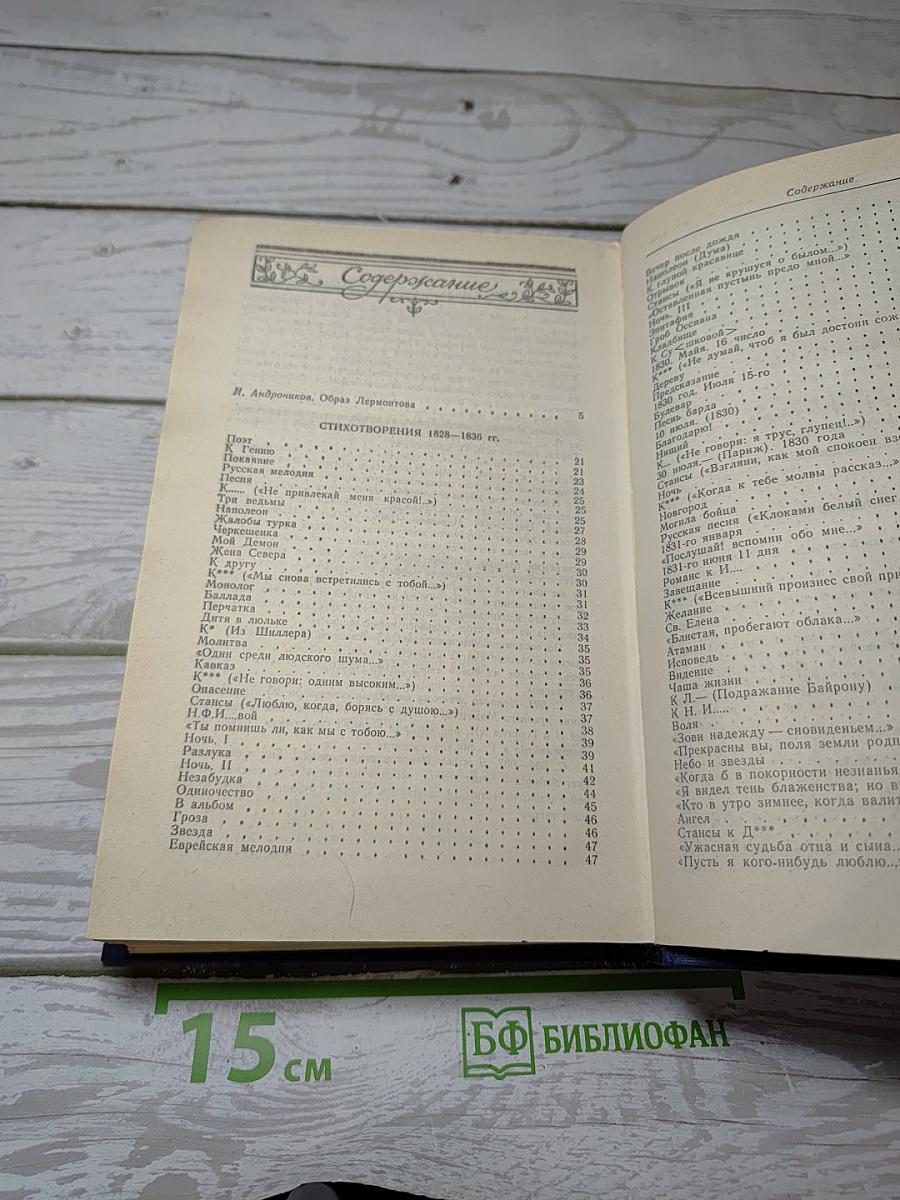 Содержание
И. Андроников. Образ Лермонтова 5
СТИХОТВОРЕНИЯ 1828—1836 гг.
Поэт 21
К Гению 21
Покаяние 23
Русская мелодия 24
Песня 25
К...... («Не привлекай меня красой!..») 25
Три ведьмы 25
Наполеон 25
Жалобы турка 27
Черкешенка 28
Мой Демон 29
Жена Севера 29
К другу 30
К*** («Мы снова встретились с тобой...») 30
Монолог 31
Баллада 31
Перчатка 32
Дитя в люльке 33
К* (Из Шиллера) 34
Молитва 35
«Один среди людского шума...» 35
Кавказ 35
К*** («Не говори: одним высоким...») 36
Опасение 36
Стансы («Люблю, когда, борясь с душою...») 37
Н.Ф.И...вой 37
«Ты помнишь ли, как мы с тобою...» 38
Ночь. I 39
Разлука 39
Ночь. II 41
Незабудка 42
Одиночество 44
В альбом 45
Гроза 46
Звезда 46
Еврейская мелодия 47
47
Содержание
Вечер после дождя
Наполеон (Дума)
К глупой красавице
Отрывок
Стансы («Я не крушуся о былом...»)
«Оставленная пустынь предо мной...»
Ночь. III
Эпитафия
Гроб Оссиана
Кладбище
К Су<шковой>
1830. Майя. 16 число
К*** («Не думай, чтоб я был достоин сож
Дереву
Предсказание
1830 год. Июля 15-го
Булевар
Песнь барда
10 июля. (1830)
Благодарю!
Нищий
К... («Не говори: я трус, глупец!..»)
30 июля.— (Париж). 1830 года
Стансы («Взгляни, как мой спокоен взо
Ночь
К*** («Когда к тебе молвы рассказ...»
Новгород
Могила бойца
Русская песня («Клоками белый снег
1831-го января
«Послушай! вспомни обо мне...»
1831-го июня 11 дня
Романс к И....
Завещание
К*** («Всевышний произнес свой при
Желание
Св. Елена
«Блистая, пробегают облака...»
Атаман
Исповедь
Видение
Чаша жизни
К Л.— (Подражание Байрону)
К Н. И.....
Воля
«Зови надежду — сновиденьем...»
«Прекрасны вы, поля земли родн
Небо и звезды
«Когда б в покорности незнанья
«Я видел тень блаженства; но в
«Кто в утро зимнее, когда валит
Ангел
Стансы к Д***
«Ужасная судьба отца и сына..
«Пусть я кого-нибудь люблю..,»
15 см
БФ БИБЛИОФАН